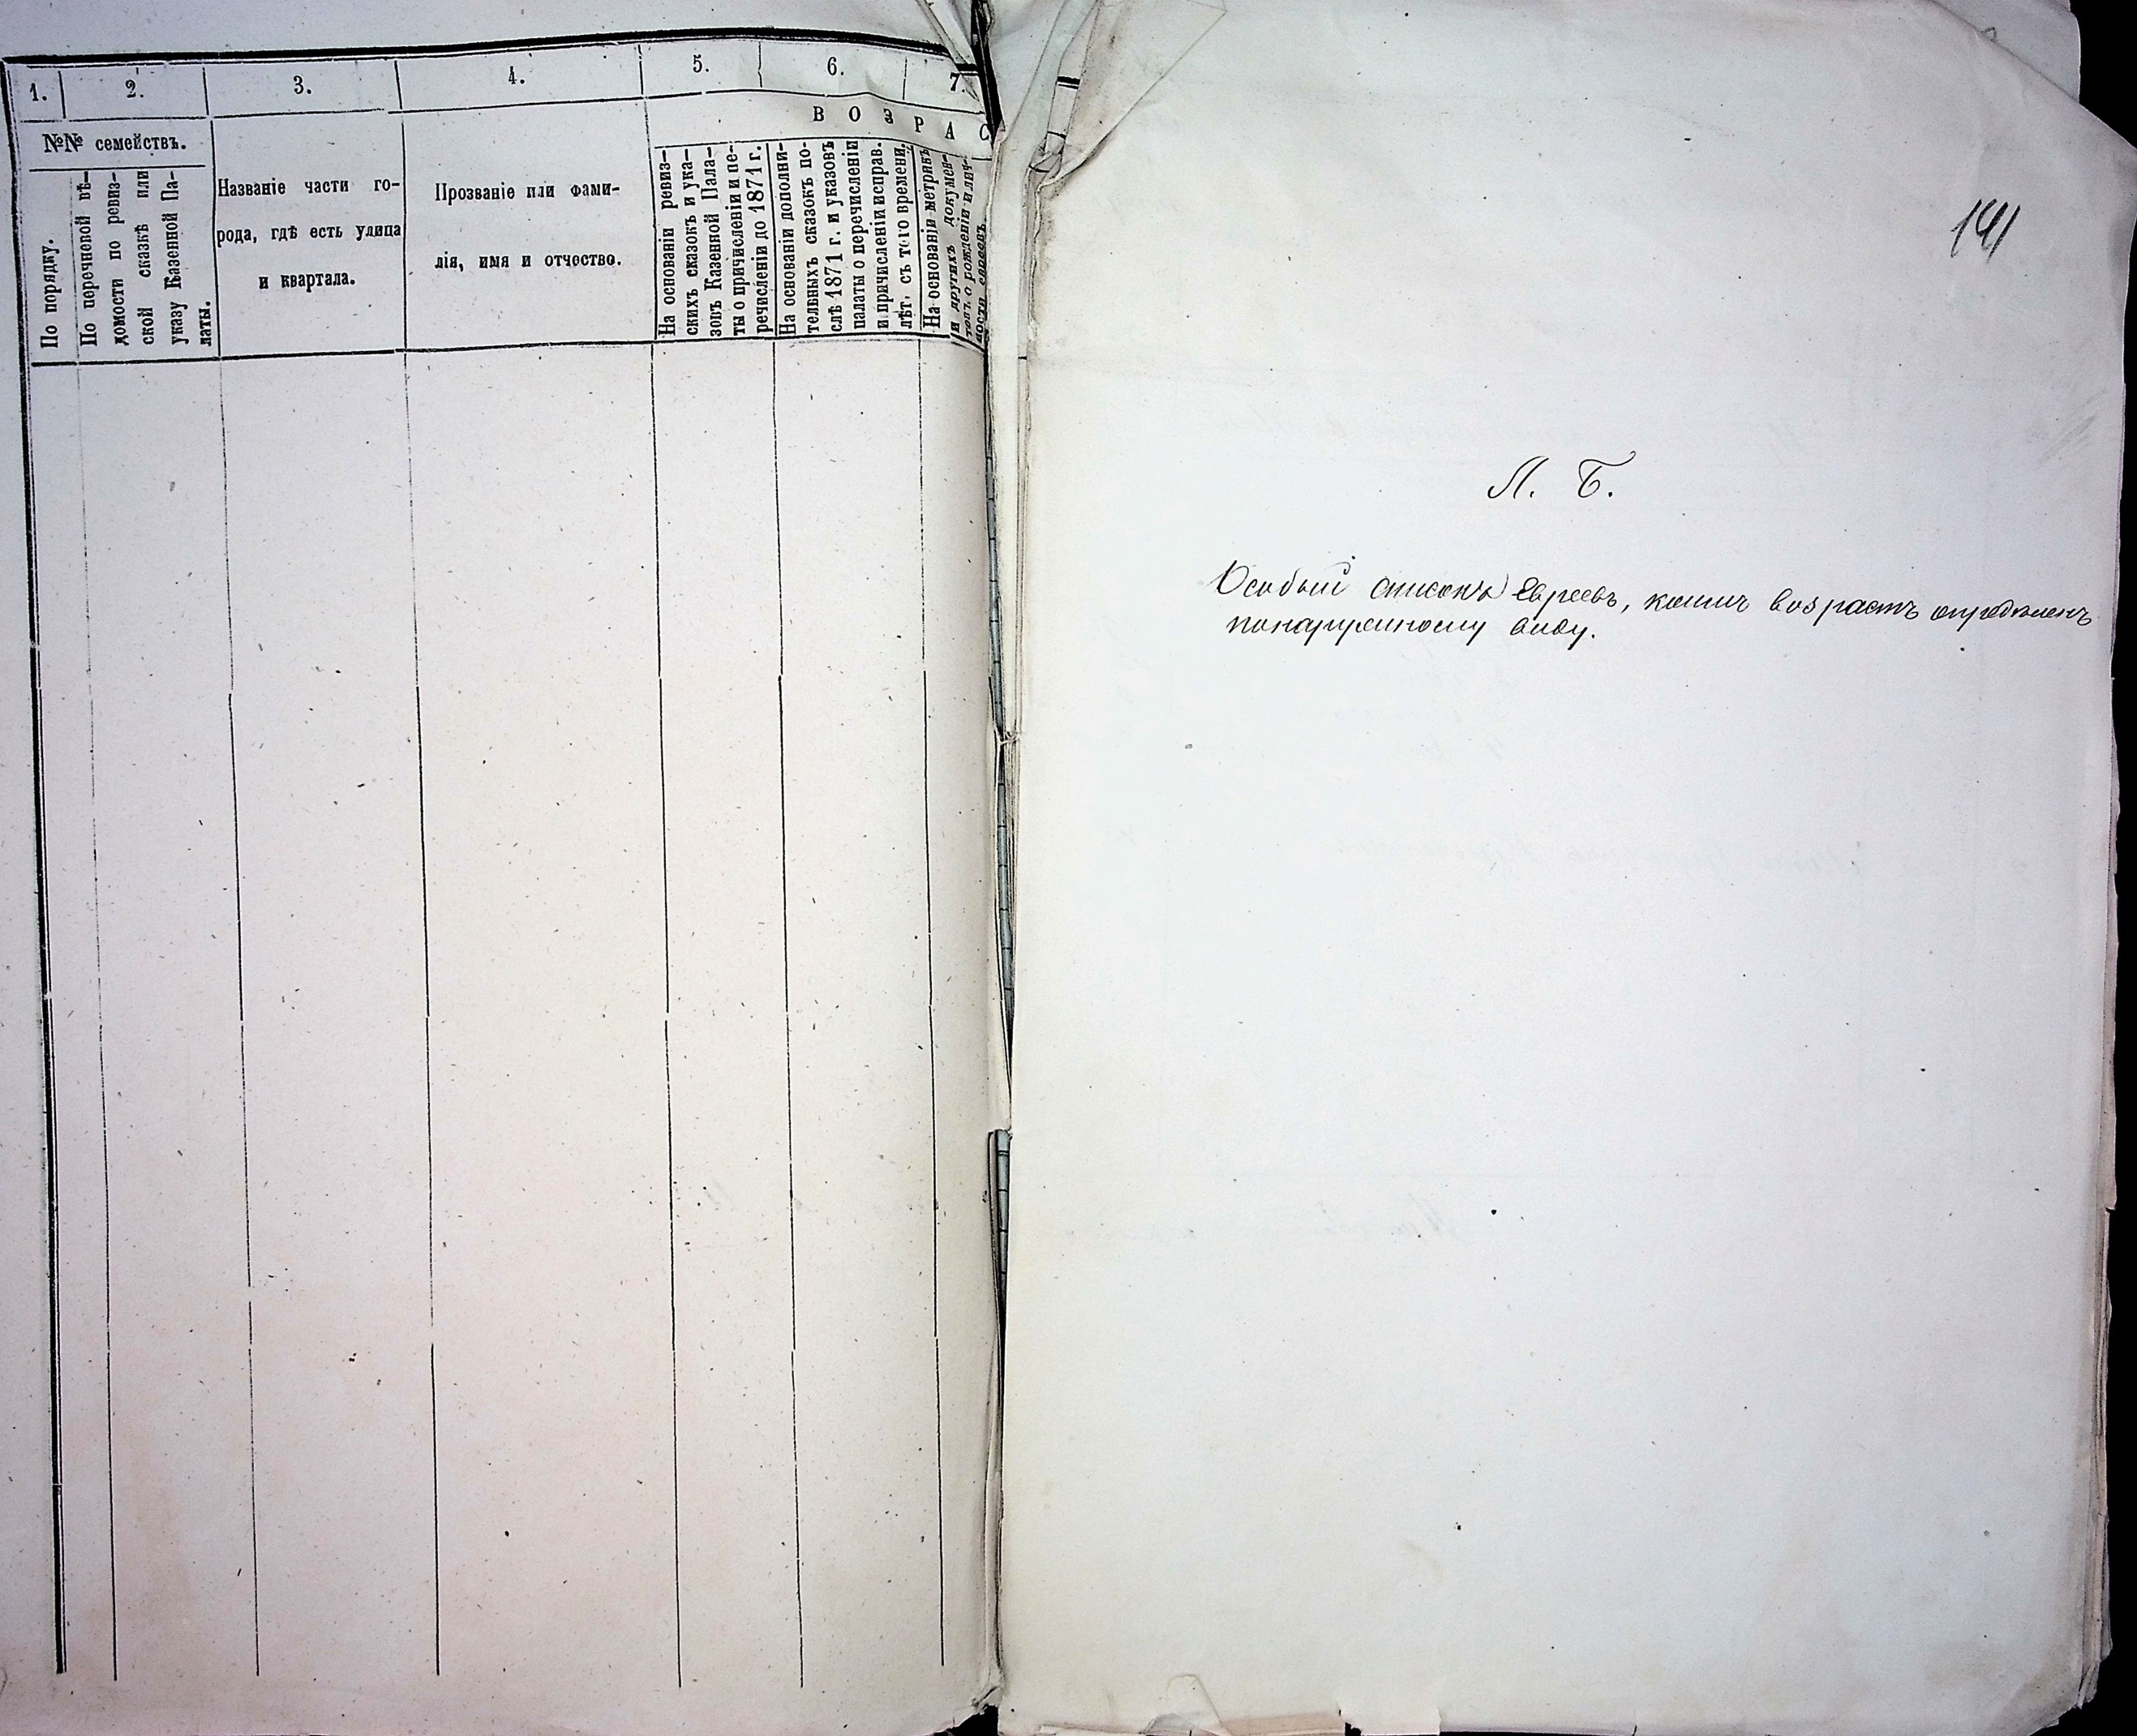 1.
2.
3.
4.
5.
6.
7.
ВОЗРАС
№№ семействъ.
По порядку.
По перечневой вѣ-
домости по ревиз-
ской сказкѣ или
указу Казенной Па-
латы.
Названіе части го-
рода, гдѣ есть улица
и квартала.
Прозваніе или фами-
лія, имя и отчество.
На основаніи ревиз-
скихъ сказокъ и ука-
зовъ Казенной Пала-
ты о причисленіи и пе-
речисленіи до 1871 г.
На основаніи дополни-
тельныхъ сказокъ по-
слѣ 1871 г. и указовъ
палаты о перечисленіи
и причисленіи исправ.
лѣт. съ того времени.
На основаніи метрикъ
и другихъ докумен-
товъ о рожденіи и лич-
ности евреевъ.
141
Л. Б.
Особый списокъ Евреевъ, коихъ возрастъ определенъ
понаружному виду.